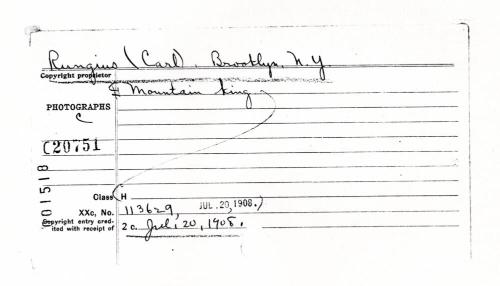 Rungius (Carl), Brooklyn, N.Y
Copyright proprietor
Mountain King
PHOTOGRAPHS
C
C20751
101518
Class H
XXc, No. 113629, JUL. 20, 1908.)
Copyright entry cred-
ited with receipt of 2c. Jul. 20, 1908.